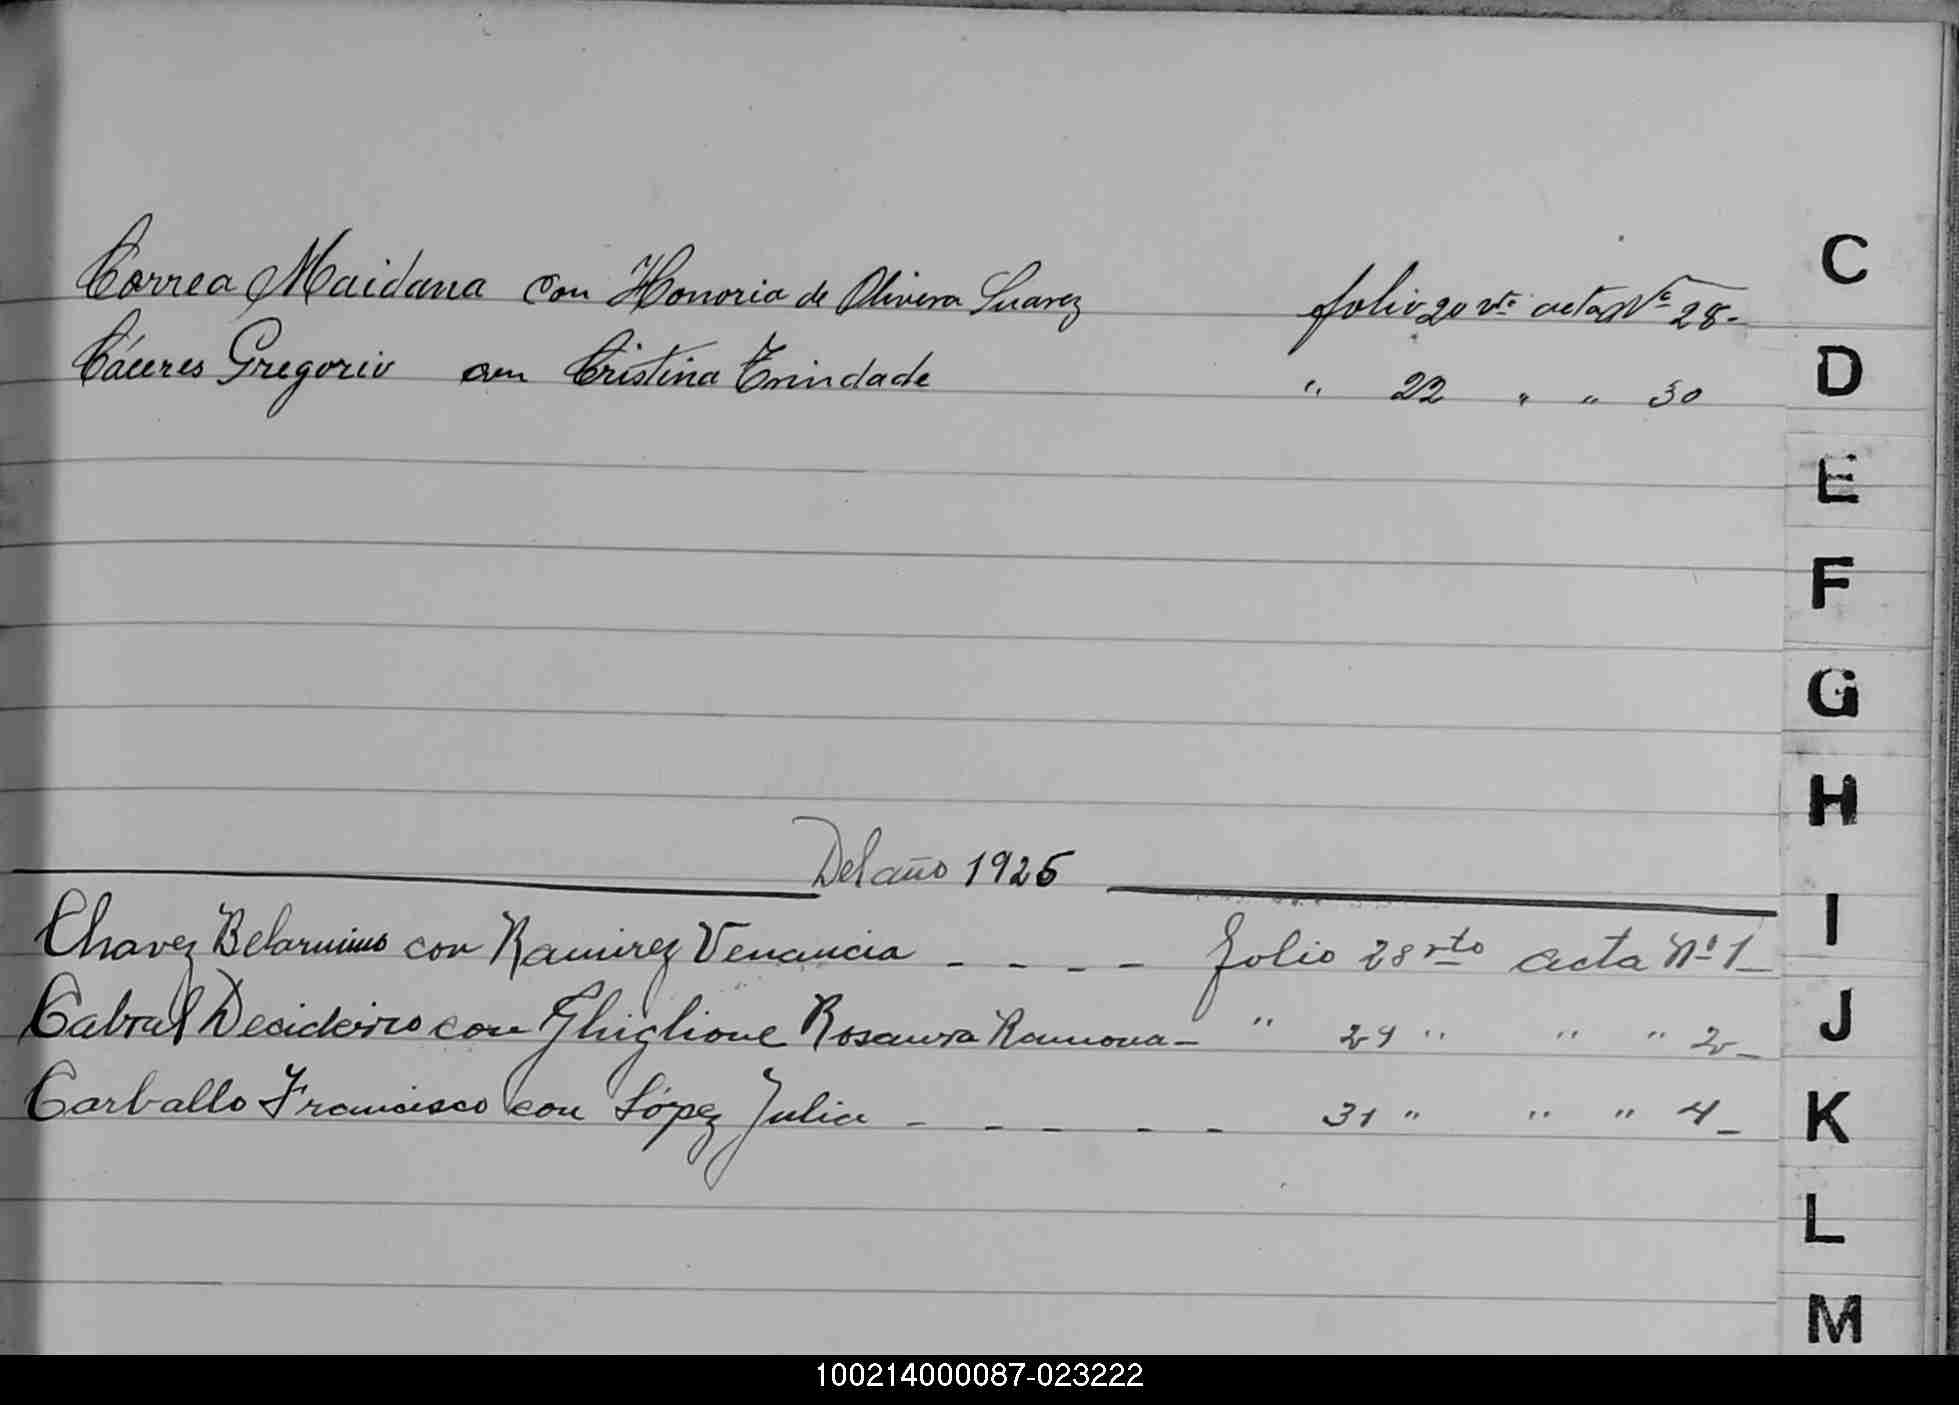 Correa Maidana con Honoria de Olivera Suarez folio 20 vto acta Nº 28-
C
Cáceres Gregorio con Cristina Trindade " 22 " " 30
D
E
F
G
H
Del año 1925
I
Chavez Belarmino con Ramirez Venancia - - - - folio 28 vto acta Nº 1-
Cabral Deciderio con Ghiglione Rosaura Ramona - " 29 " " " 2-
J
Carballo Francisco con López Julia - - - - - 31 " " " 4-
K
L
M
100214000087-023222